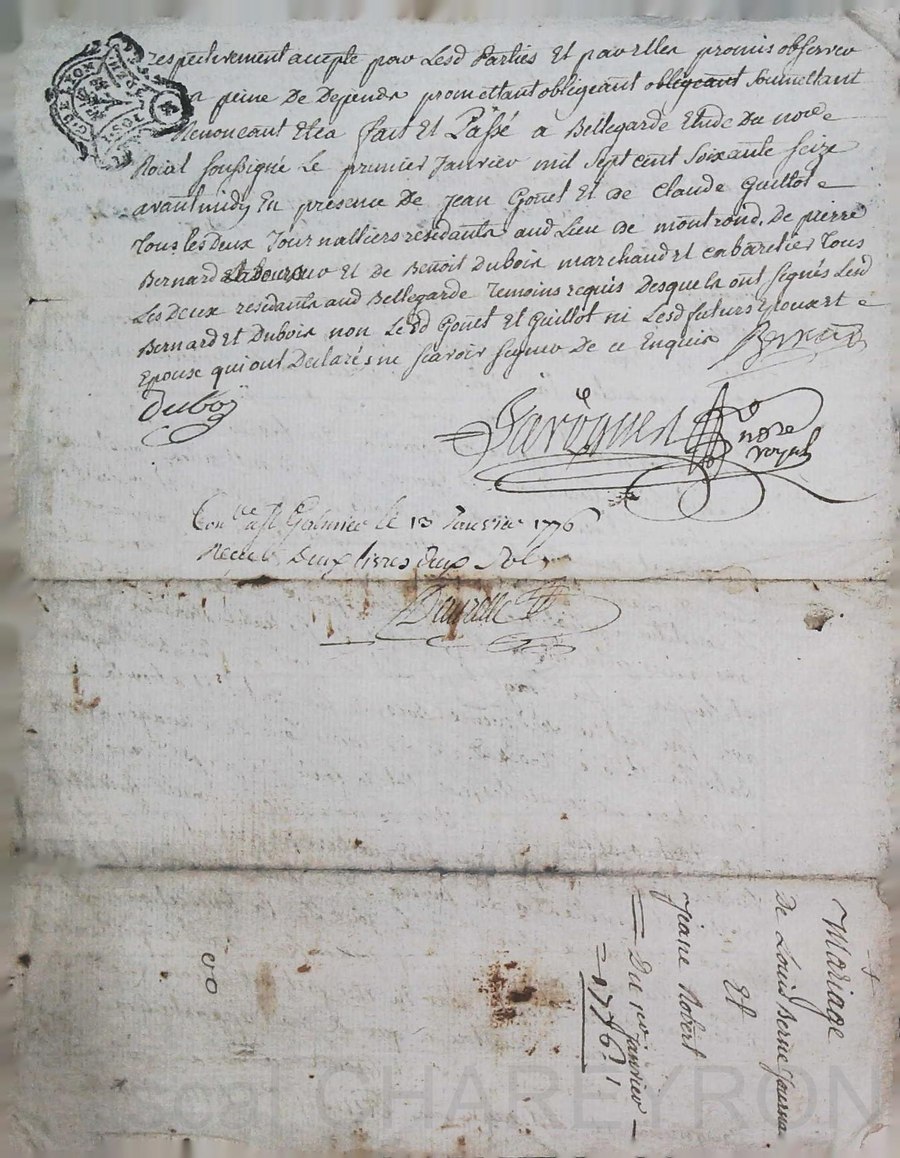 respectivement accepté pour Lesd Parties Et par Elles promis observer
peine De Depends promettant obligeant obligeant Soumettant
Renonçant Etca fait Et Passé a Bellegarde Etude Du nore
Roial soussigné Le premier Janvier mil sept cent soixante seize
avant midy En presence De Jean Gonet Et de Claude Guillot
Tous les deux Journalliers residants aud Lieu de montrond, De pierre
Bernard Et de Benoit Dubois marchand et cabaretier Tous
Les Deux residants aud Bellegarde Temoins requis Desquels ont signés Lesd
Bernard Et Dubois non Lesd Gonet Et Guillot ni Lesd futurs Epoux Et
Epouse qui ont Declarés ne scavoir signer De ce Enquis Bernard
Duboy
nore
royal
Con le a St Galmier le 13 Janvier 1776
Recu Deux livres Deux Sols
Mariage
De Louis Berne Journa
Et
Jeane Robert
Du 1er janvier
1776
CHAREYRON